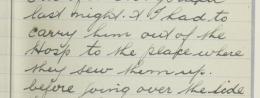 last night. & I had to
carry him out of the
Hosp to the place where
they sew them up.
before going over the side